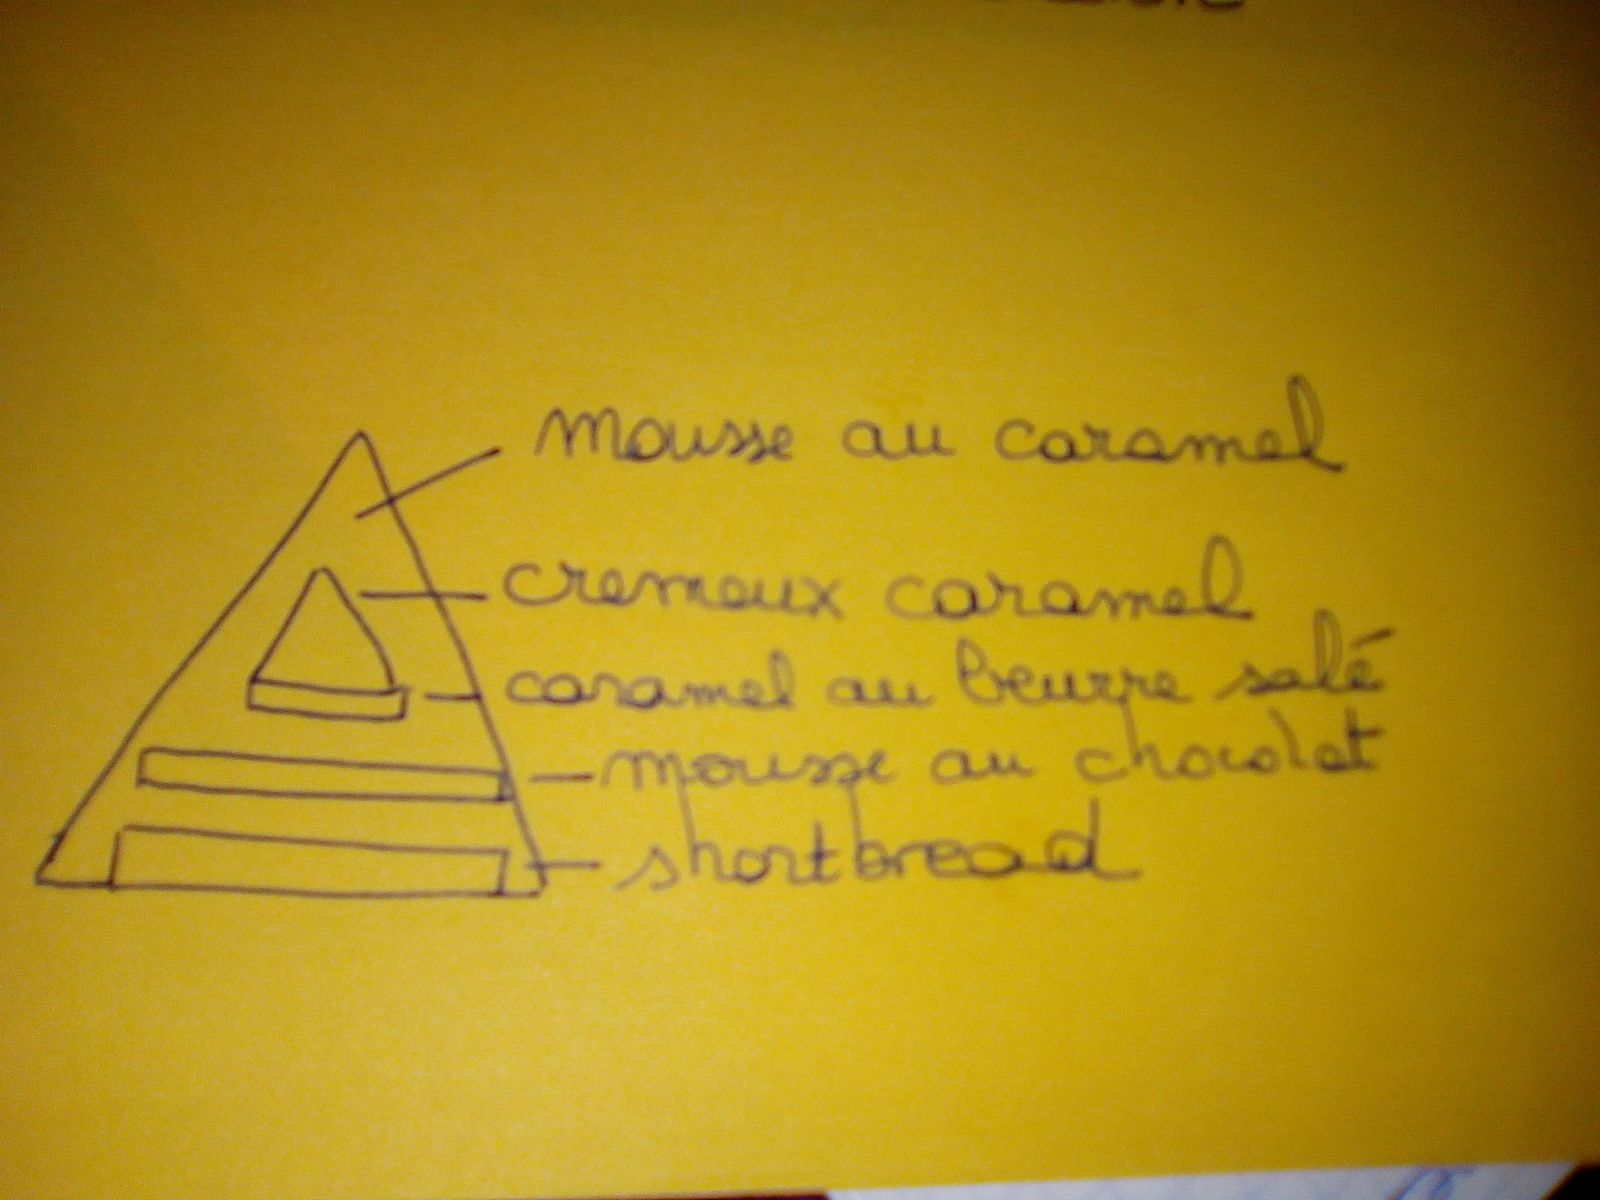 mousse au caramel
cremeux caramel
caramel au beurre salé
mousse au chocolat
shortbread